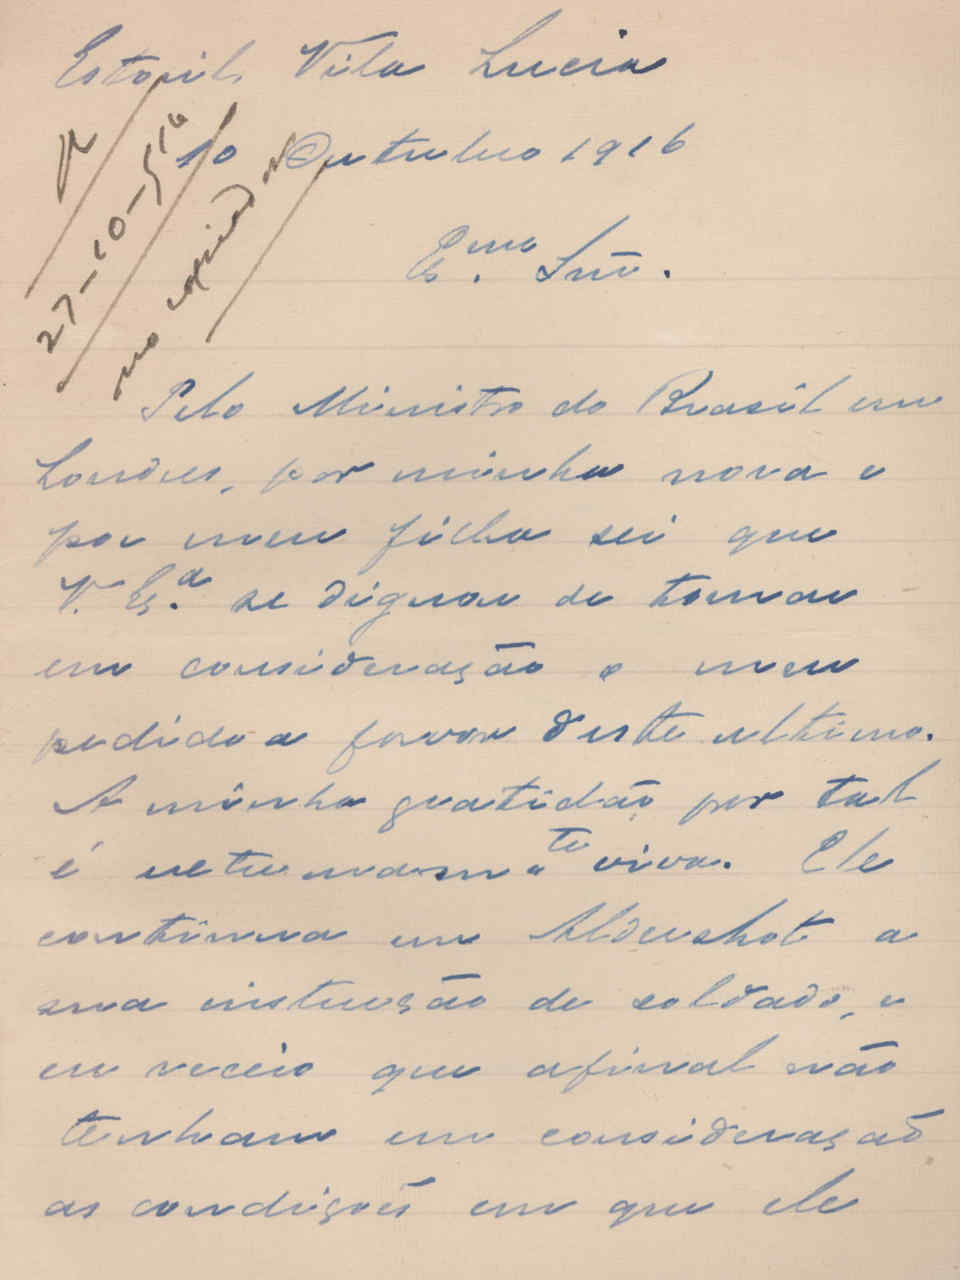 Estoril, Vila Lucia
10 Outubro 1916
R
27-10-916
no copiador
Exmo. Snr.
Pelo Ministro do Brasil em
Londres, por minha nora e
por meu filho sei que
V. Exª se dignou de tomar
em consideração o meu
pedido a favor deste ultimo.
A minha gratidão por tal
é extremam.te viva. Ele
continua em Aldershot a
sua instrução de soldado, e
eu receio que afinal não
tenham em consideração
as condições em que ele